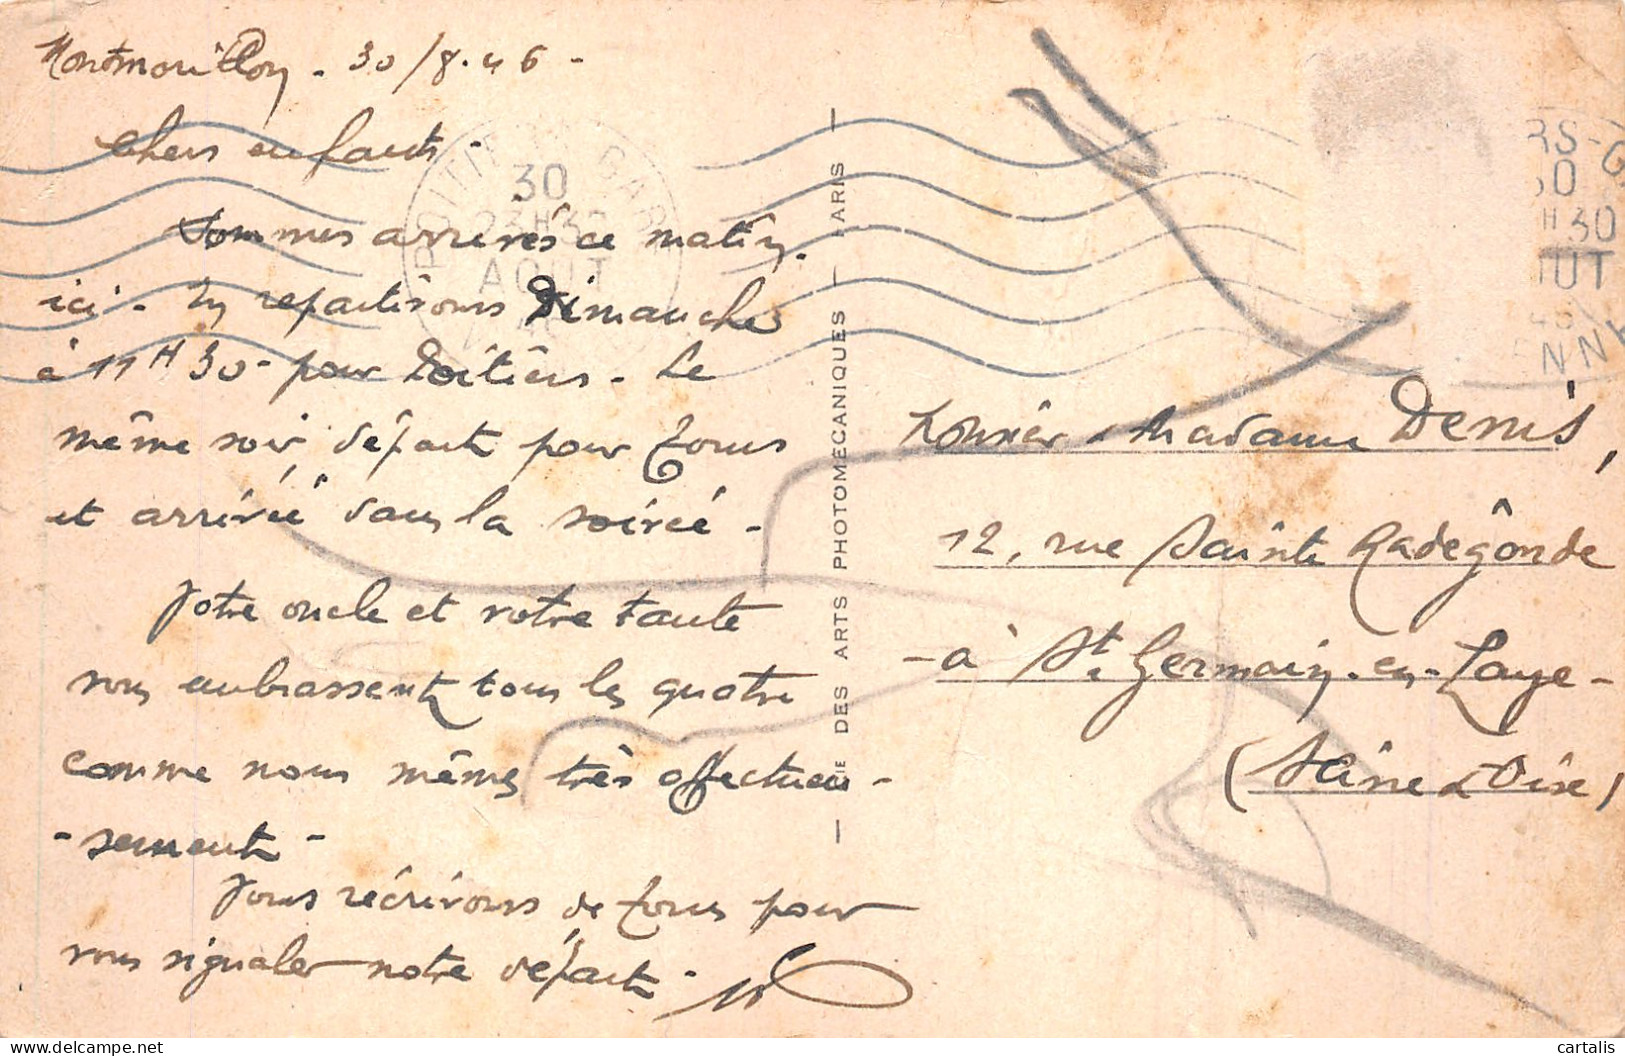 Montmorillon - 30/8.46 -
Chers enfants -
Sommes arrivés ce matin
ici - En repartirons Dimanche
à 11H30 - pour Poitiers - Le
même soir, départ pour Tours
et arrivée dans la soirée -
Votre oncle et votre tante
vous embrassent tous les quatre
comme nous mêmes très affectueu-
-sement -
Vous récrirons de Tours pour
vous signaler notre départ -
POITIERS GARE
30
23H30
AOUT
CIE DES ARTS PHOTOMECANIQUES — PARIS —
RS-GA
30
H 30
OUT
ENNE
Monsieur & Madame Denis,
12, rue Sainte Radégônde
- à St. Germain-en-Laye -
(Seine & Oise)
cartalis